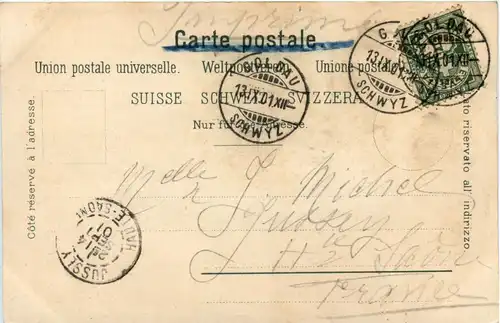 Imprimé
Carte postale.
Union postale universelle. Weltpostverein. Unione postale
SUISSE SCHWEIZ SVIZZERA
Nur für die Adresse.
Côté réservé à l'adresse.
Lato riservato all' indirizzo.
GOLDAU
13.IX.01.XII
SCHWYZ
GOLDAU
13.IX.01.XII
SCHWYZ
JUSSEY
14
SEPT
01
HAUTE-SAONE
Melle J. Michel
Jussey
Hte Saône
France